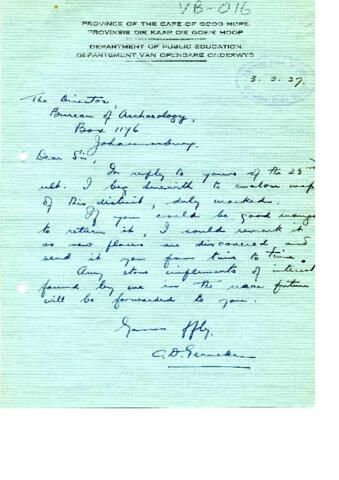 VB-016
PROVINCE OF THE CAPE OF GOOD HOPE
PROVINSIE DIE KAAP DIE GOEIE HOOP
DEPARTMENT OF PUBLIC EDUCATION
DEPARTEMENT VAN OPENBARE ONDERWYS
3.3.37.
The Director,
Bureau of Archaeology,
Box 1176
Johannesburg.
Dear Sir,
In reply to yours of the 23rd
ult. I beg herewith to enclose map
of this district, duly marked.
If you would be good enough
to return it, I could remark it
as new places are discovered, and
send it you from time to time.
Any stone implements of interest
found by me in the near future
will be forwarded to you.
Yours ffly.